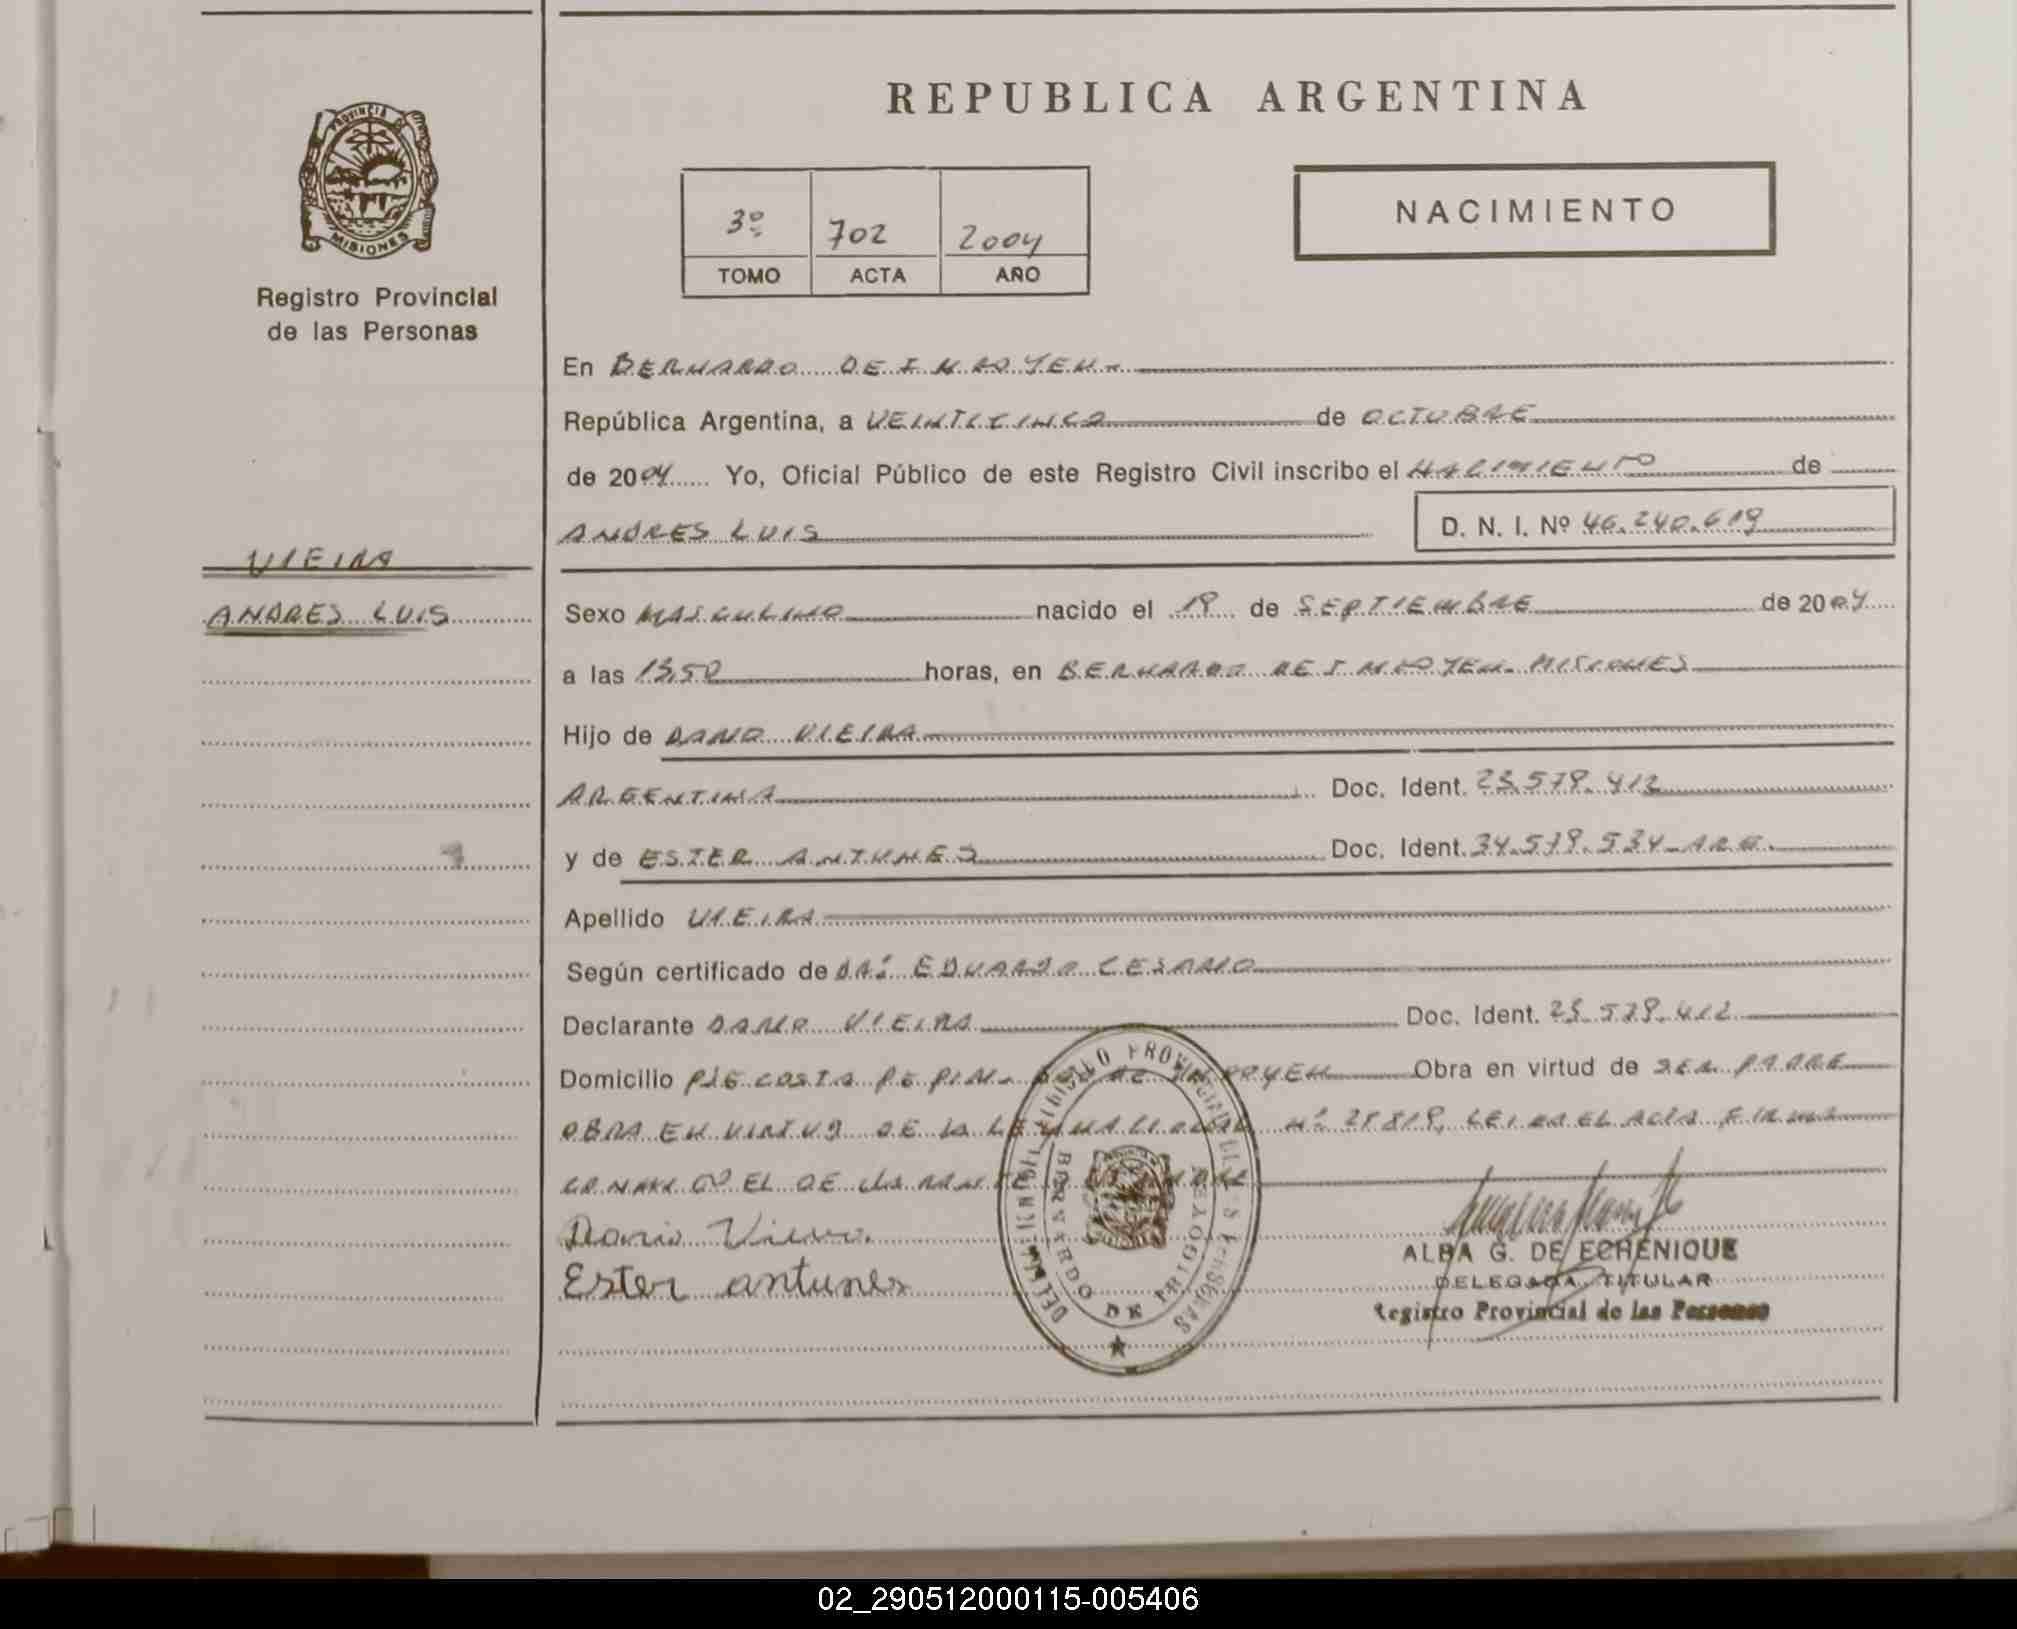 REPUBLICA ARGENTINA
PROVINCIA DE
MISIONES
Registro Provincial
de las Personas
3º 702 2004
TOMO ACTA AÑO
NACIMIENTO
En BERNARDO DE IRIGOYEN.-
República Argentina, a VEINTICINCO de OCTUBRE
de 2004 Yo, Oficial Público de este Registro Civil inscribo el NACIMIENTO de
ANDRES LUIS D. N. I. Nº 46.240.619
VIEIRA
ANDRES LUIS
Sexo MASCULINO nacido el 19 de SEPTIEMBRE de 2004
a las 13,50 horas, en BERNARDO DE IRIGOYEN. MISIONES
Hijo de DARIO VIEIRA
ARGENTINA Doc. Ident. 23.579.412
y de ESTER ANTUNES Doc. Ident. 34.579.534 ARG.
Apellido VIEIRA
Según certificado de EDUARDO CESARIO
Declarante DARIO VIEIRA Doc. Ident. 23.579.412
Domicilio COSTA Obra en virtud de SER PADRE
OBRA EN VIRTUD DE LA LEY NACIONAL Nº LEIDA EL ACTA FIRMA
EL DECLARANTE
Dario Vieira
Ester antunes
DELEGACION REGISTRO PROVINCIAL DE LAS PERSONAS
BERNARDO DE IRIGOYEN
ALBA G. DE ECHENIQUE
DELEGADA TITULAR
Registro Provincial de las Personas
02_290512000115-005406